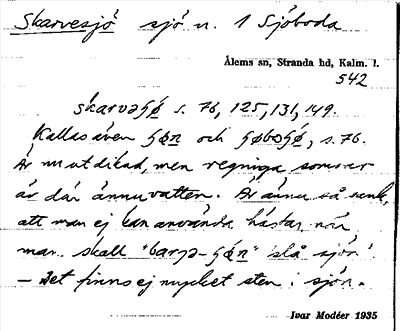 Skarvesjö sjö n. 1 Sjöboda
Ålems sn, Stranda hd, Kalm. l.
542
skarvəʂö s. 76, 125, 131, 149.
Kallas även ʂön och ʂöboʂö, s. 76.
Är nu utdikad, men regniga somrar
är där ännu vatten. Är ännu så sank,
att man ej kan använda hästar, när
man skall "bärja-ʂön" slå sjön.
– Det finns ej mycket sten i sjön.
Ivar Modéer 1935